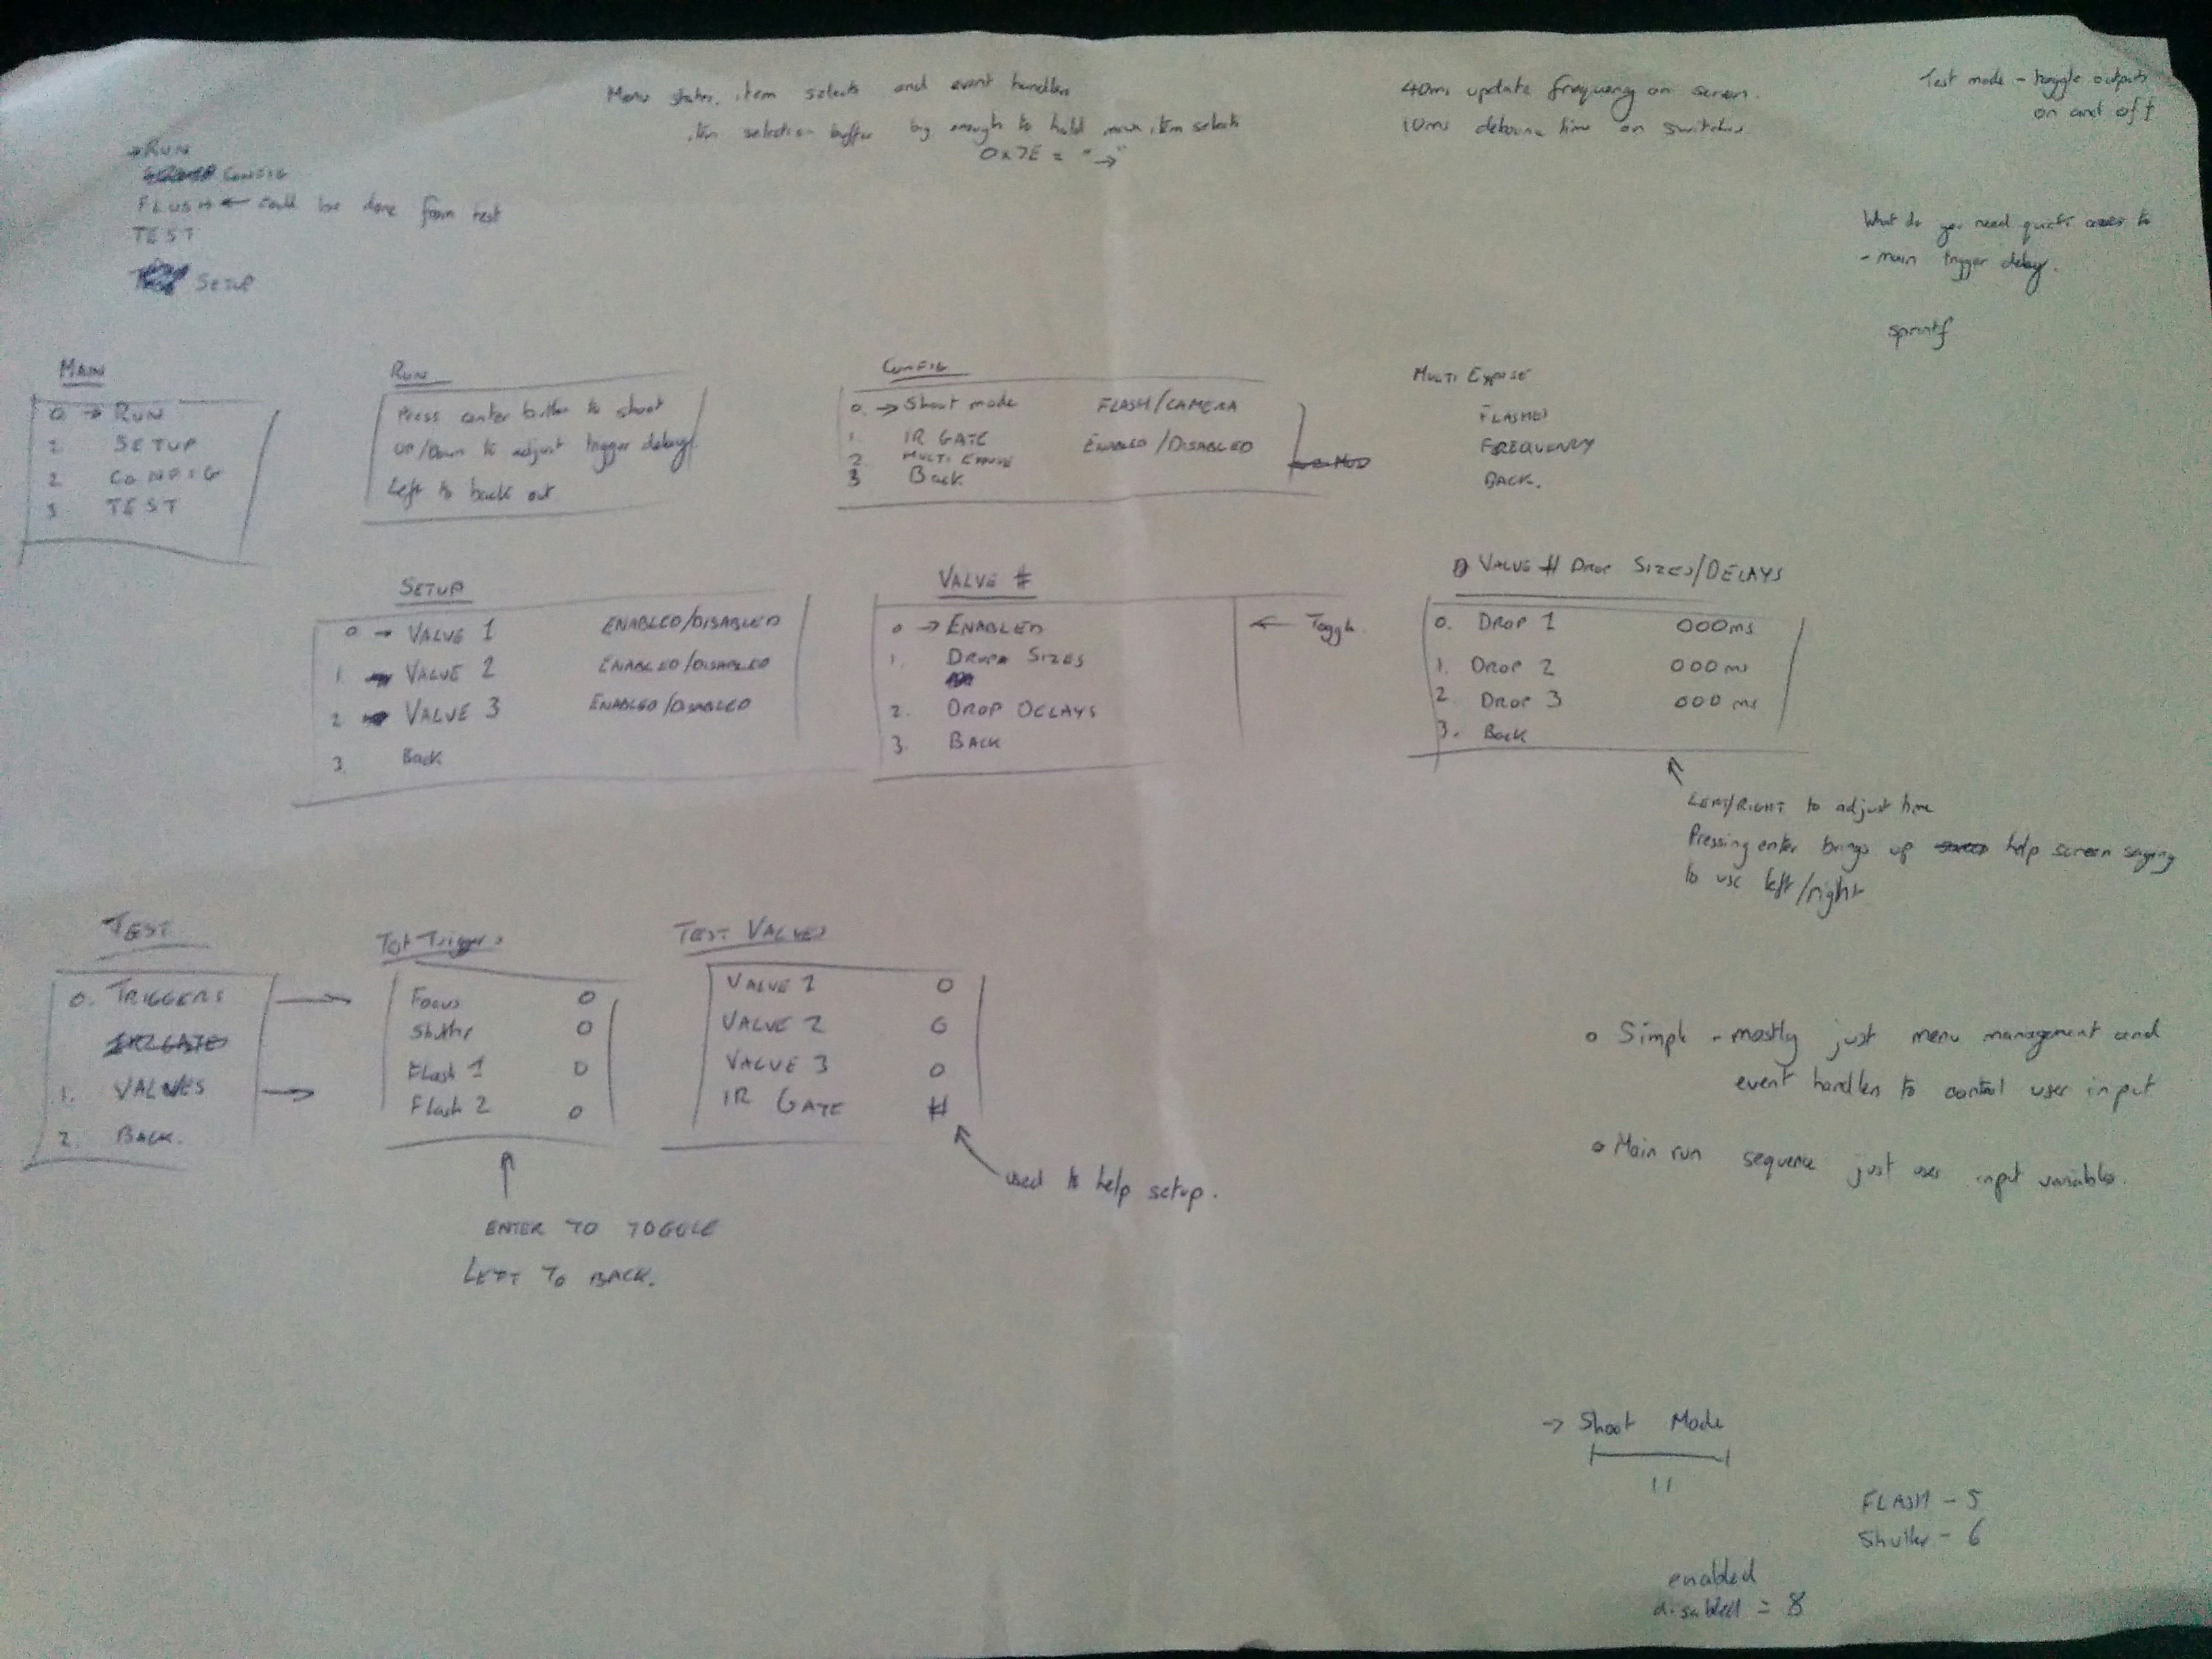 Menu states, item selects and event handlers
item selection buffer big enough to hold max item selects
0x7E = "→"
40ms update frequency on screen.
10ms debounce time on switches
Test mode - toggle outputs
on and off
→RUN
CONFIG
FLUSH ← could be done from test
TEST
SETUP
What do you need quick access to
- main trigger delay.
sprintf
MAIN
0 → RUN
SETUP
2 CONFIG
3 TEST
RUN
Press center button to shoot
UP/Down to adjust trigger delay.
Left to back out
CONFIG
0. → Shoot mode FLASH/CAMERA
1. IR GATE ENABLED/DISABLED
2. MULTI EXPOSE
3 Back
MULTI EXPOSE
FLASHES
FREQUENCY
BACK.
SETUP
0 → VALVE 1 ENABLED/DISABLED
1 VALVE 2 ENABLED/DISABLED
2 VALVE 3 ENABLED/DISABLED
3. Back
VALVE #
0 → ENABLED ← Toggle
1. DROP SIZES
2. DROP DELAYS
3. BACK
VALVE # DROP SIZES/DELAYS
0. DROP 1 000ms
1. DROP 2 000ms
2. DROP 3 000ms
3. Back
LEFT/RIGHT to adjust time
Pressing enter brings up help screen saying
to use left/right
TEST
0. TRIGGERS
IR GATE
1. VALVES
2. BACK.
Test Triggers
Focus 0
Shutter 0
Flash 1 0
Flash 2 0
ENTER TO TOGGLE
LEFT TO BACK.
TEST VALVES
VALVE 1 0
VALVE 2 0
VALVE 3 0
IR GATE #
used to help setup.
o Simple - mostly just menu management and
event handlers to control user input
o Main run sequence just uses input variables.
→ Shoot Mode
11
FLASH - 5
Shutter - 6
enabled
disabled = 8